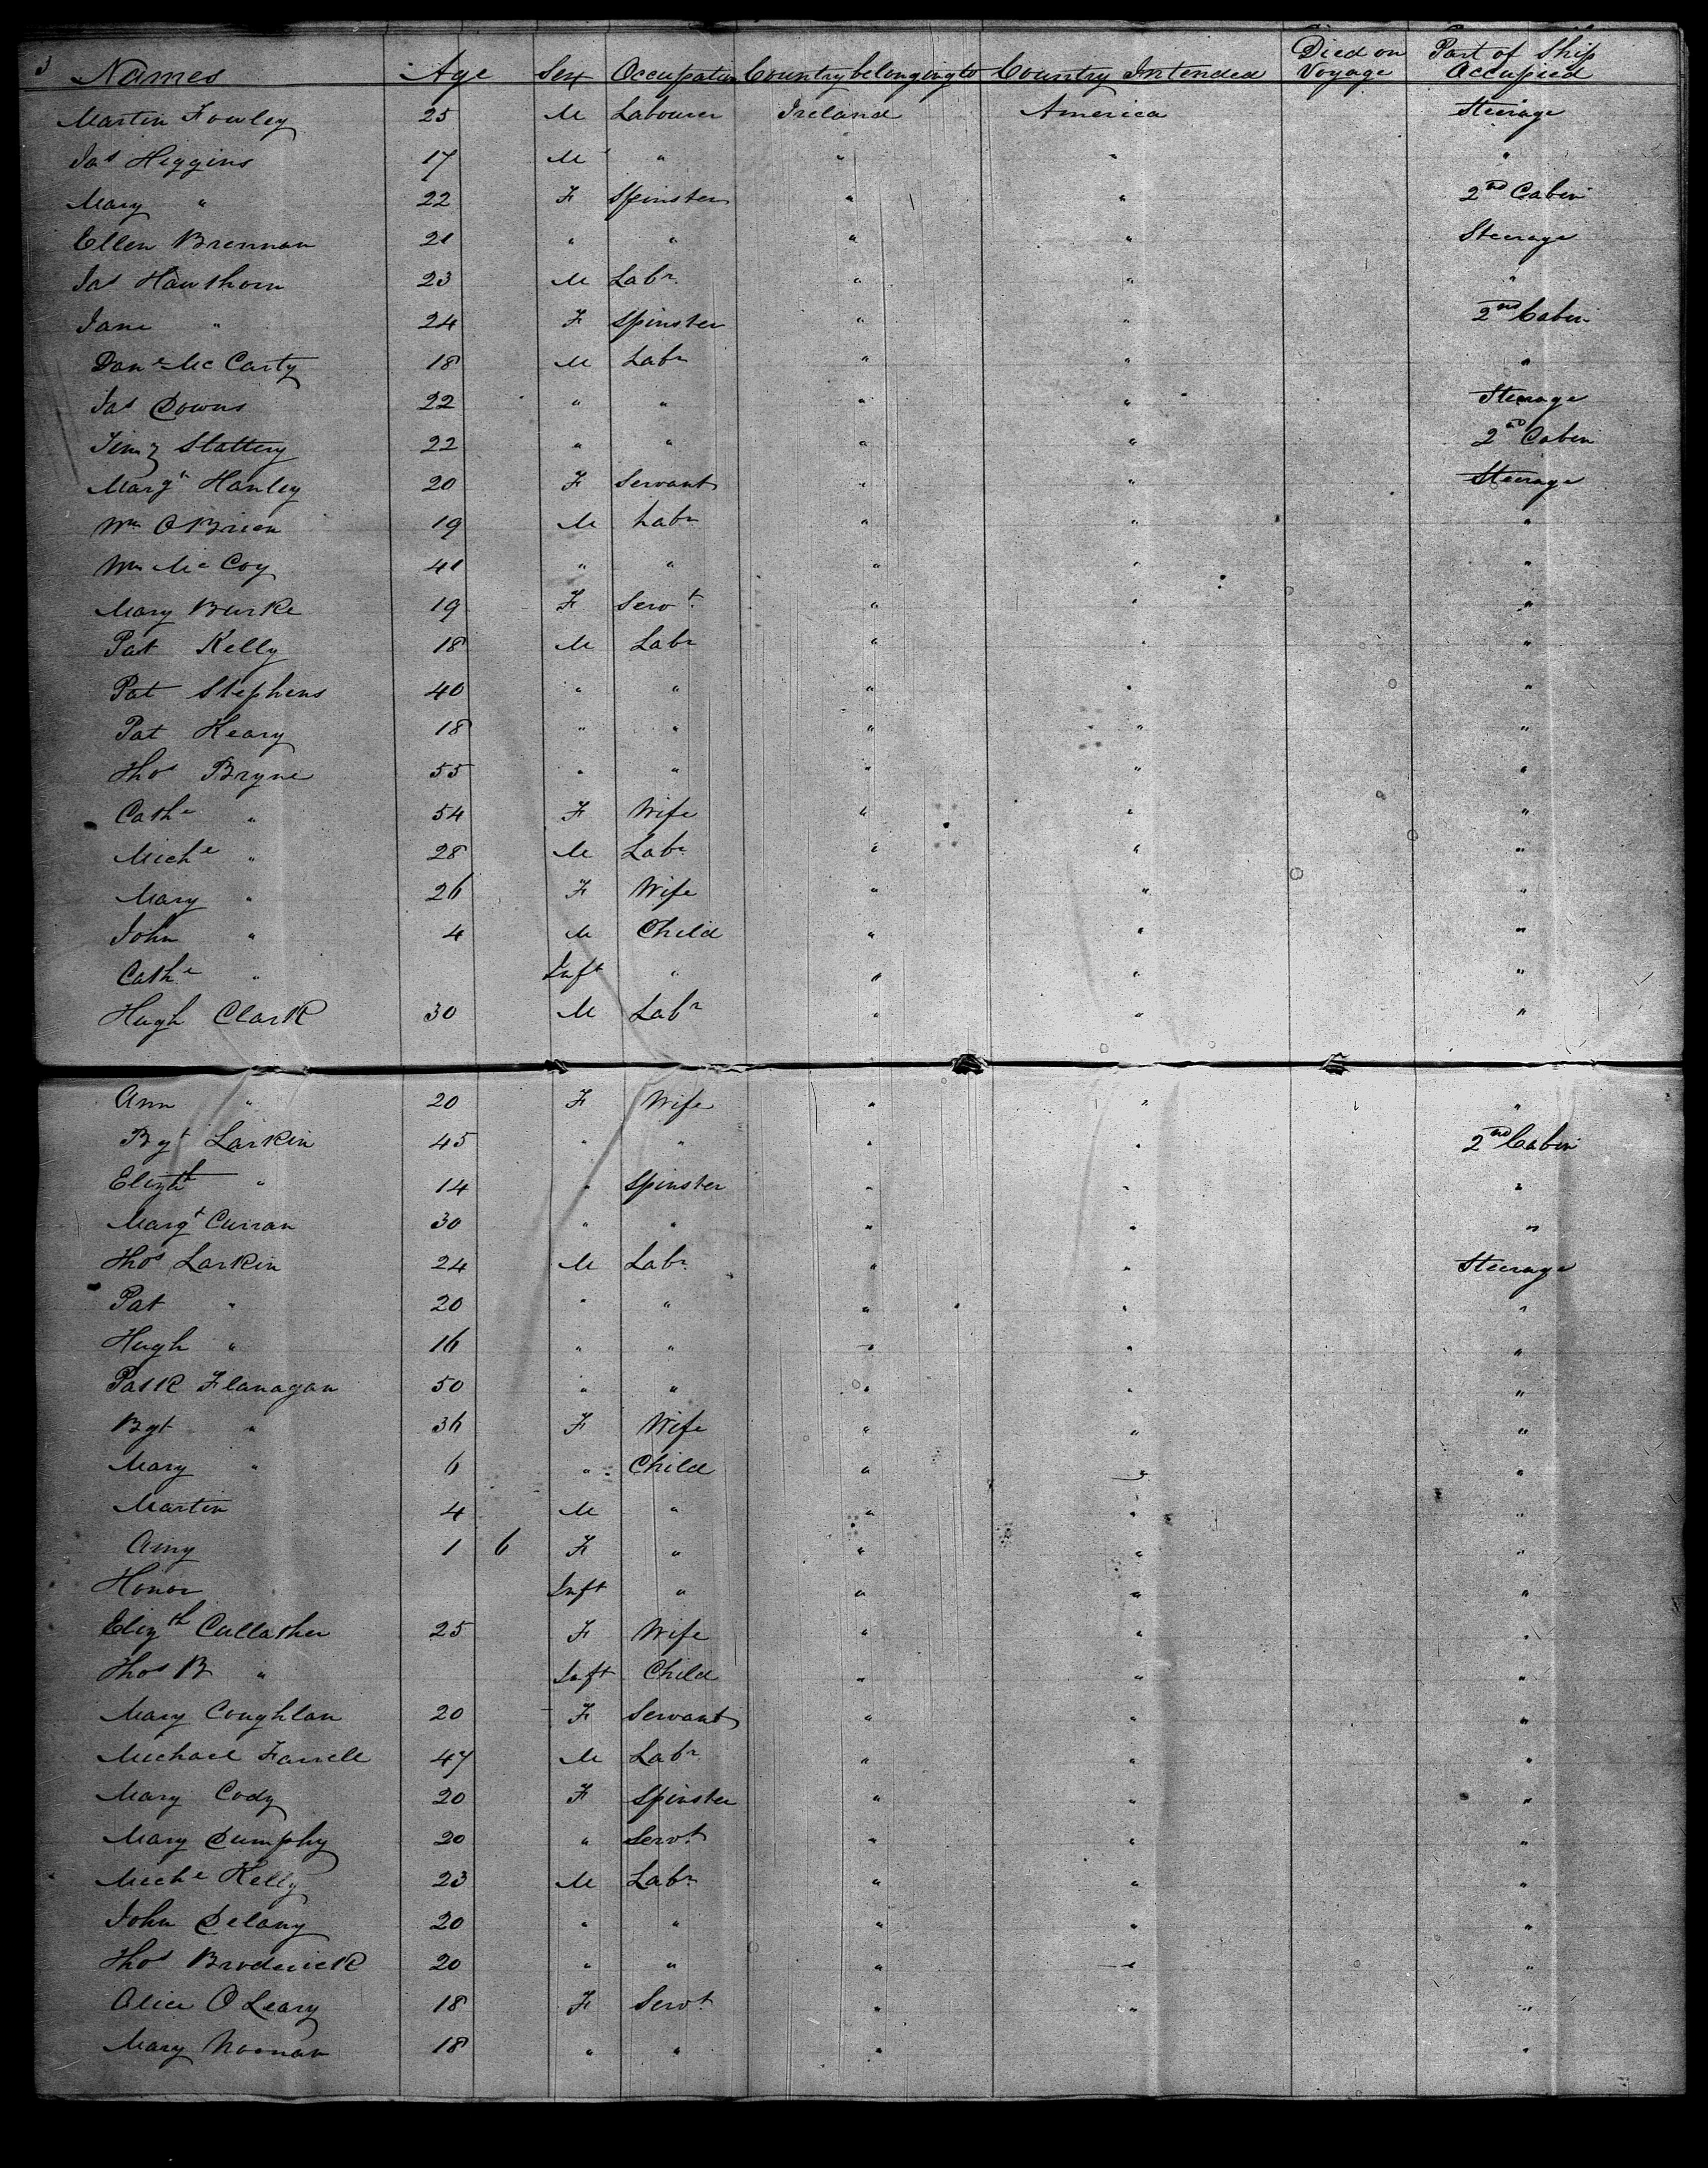 3 Names Age Sex Occupation Country belonging to Country Intended Died on Voyage Part of Ship Occupied
Martin Fowley 25 M Labourer Ireland America Steerage
Jas Higgins 17 M " " " "
Mary " 22 F Spinster " " 2nd Cabin
Ellen Brennan 21 " " " " Steerage
Jas Hawthorn 23 M Labr " " "
Jane " 24 F Spinster " " 2nd Cabin
Danl McCarty 18 M Labr " " "
Jas Downs 22 " " " " Steerage
Timy Slattery 22 " " " " 2nd Cabin
Margt Hanley 20 F Servant " " Steerage
Wm OBrien 19 M Labr " " "
Wm McCoy 41 " " " " "
Mary Burke 19 F Servt " " "
Pat Kelly 18 M Labr " " "
Pat Stephens 40 " " " " "
Pat Heary 18 " " " " "
Thos Bryne 55 " " " " "
Cathe " 54 F Wife " " "
Miche " 28 M Labr " " "
Mary " 26 F Wife " " "
John " 4 M Child " " "
Cathe " Inft " " " "
Hugh Clark 30 M Labr " " "
Ann " 20 F Wife " " "
Bgt Larkin 45 " " " " 2nd Cabin
Elizth " 14 " Spinster " " "
Margt Curran 30 " " " " "
Thos Larkin 24 M Labr " " Steerage
Pat " 20 " " " " "
Hugh " 16 " " " " "
Patk Flanagan 50 " " " " "
Bgt " 36 F Wife " " "
Mary " 6 " Child " " "
Martin 4 M " " " "
Amy 1 6 F " " " "
Honor Inft " " " "
Elizth Cullather 25 F Wife " " "
Thos B " Inft Child " " "
Mary Coughlan 20 F Servant " " "
Michael Farrell 47 M Labr " " "
Mary Cody 20 F Spinster " " "
Mary Dumphy 20 " Servt " " "
Miche Kelly 23 M Labr " " "
John Delany 20 " " " " "
Thos Broderick 20 " " " " "
Alice OLeary 18 F Servt " " "
Mary Noonan 18 " " " "